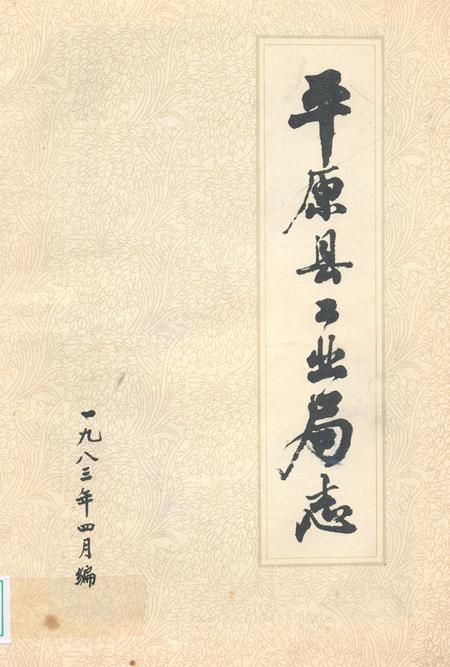 平原县工业局志
一九八三年四月编